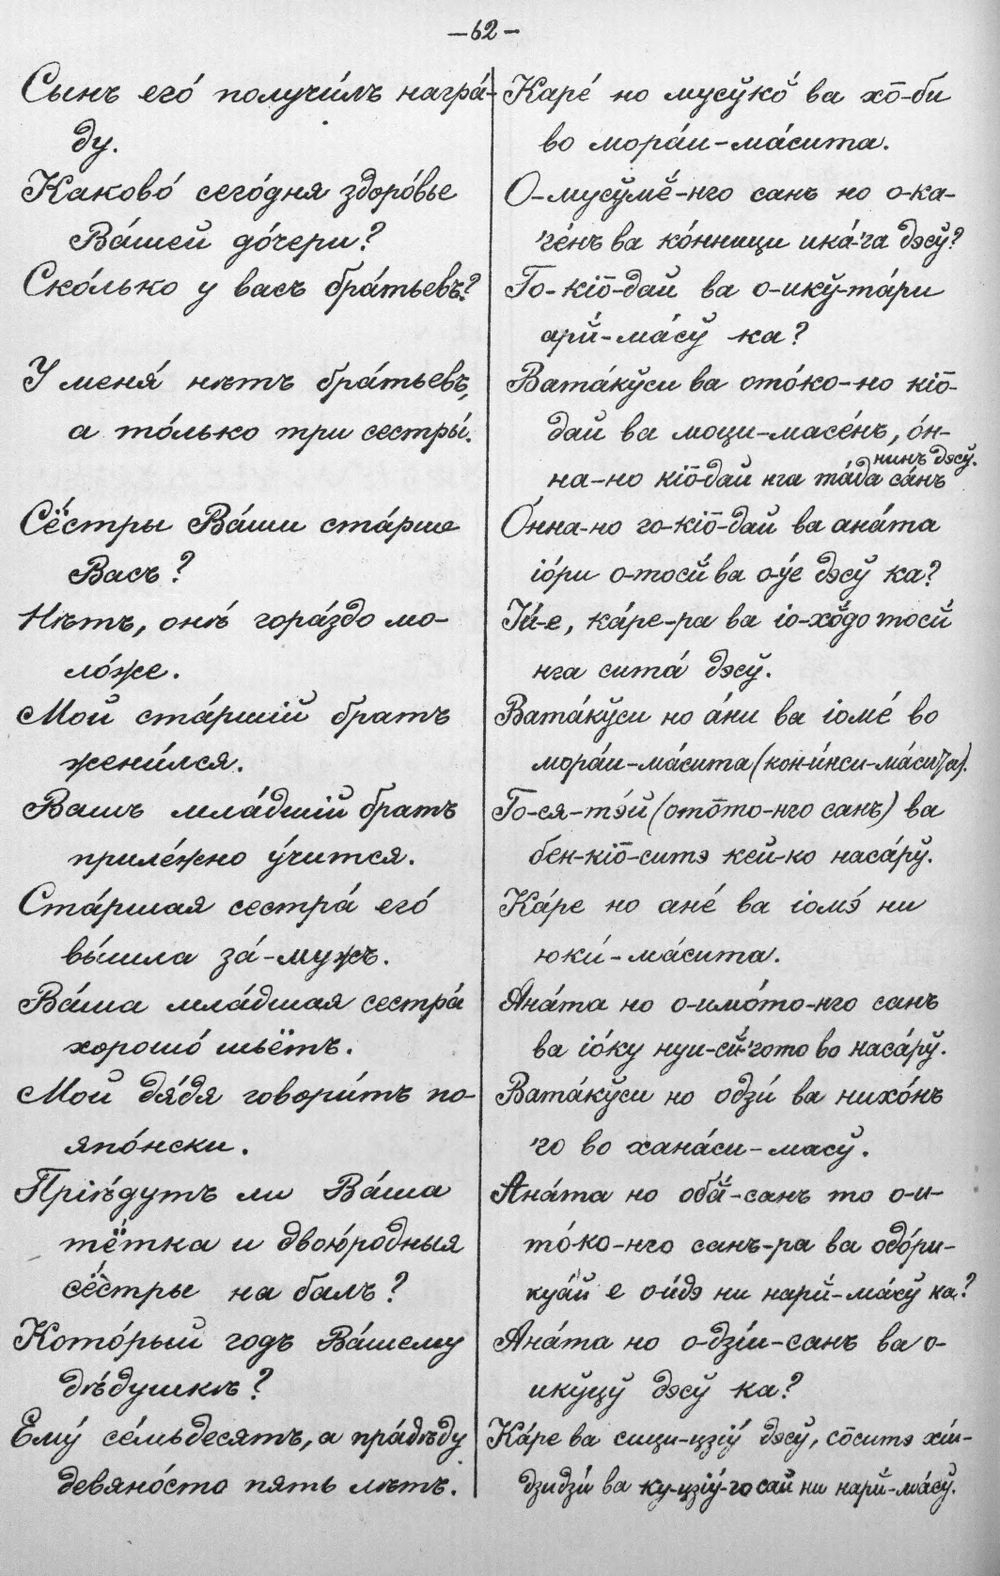 —62—
Сынъ его́ получи́лъ награ́-
ду.
Каково́ сего́дня здоро́вье
Ва́шей до́чери?
Ско́лько у васъ бра́тьевъ?
У меня́ нѣтъ бра́тьевъ,
а то́лько три сестры́.
Сёстры Ва́ши ста́рше
Васъ?
Нѣтъ, онѣ́ гора́здо мо-
ло́же.
Мой ста́ршій братъ
жени́лся.
Вашъ мла́дшій братъ
приле́жно у́чится.
Ста́ршая сестра́ его́
вы́шла за́-мужъ.
Ва́ша мла́дшая сестра́
хорошо́ шьётъ.
Мой дя́дя говори́тъ по-
япо́нски.
Пріѣ́дутъ ли Ва́ша
тётка и двою́родныя
сёстры на балъ?
Кото́рый годъ Ва́шему
дѣ́душкѣ?
Ему́ се́мьдесятъ, а пра́дѣду
девяно́сто пять лѣтъ.
Каре́ но мусӯко̆ ва хо̄-би
во мора́и-ма́сита.
О-мусӯмĕ-нго санъ но о-ка-
'ге́нъ ва ко́нници ика́-'га дэсӯ?
Го-кіо̄-дай ва о-икӯ-та́ри
арй-ма́сӯ ка?
Вата́кӯси ва ото́ко-но кіо̄-
дай ва моци-масе́нъ, о́н-
на-но кіо̄-дай нга та́да са́нъ
нинъ дэсӯ.
О́нна-но го-кіо̄-дай ва ана́та
іо́ри о-тосй ва о-у́е дэсӯ ка?
Іи́-е, ка́ре-ра ва іо-хо̆до тосй
нга сита́ дэсӯ.
Вата́кӯси но а́ни ва іоме́ во
мора́и-ма́сита (кон-и́нси-ма́сита).
Го-ся-тэ́й (ото̄то-нго санъ) ва
бен-кіо̄-ситэ кей-ко наса́рӯ.
Ка́ре но ане́ ва іомэ́ ни
юки́-ма́сита.
Ана́та но о-имо́то-нго санъ
ва іо́ку нуи-сй-'гото во наса́рӯ.
Вата́кӯси но одзи́ ва нихо́нъ
'го во хана́си-масӯ.
Ана́та но обӑ-санъ то о-и-
то́-ко-нго санъ-ра ва одо́ри-
куа́й е о-и́дэ ни нарй-ма́сӯ ка?
Ана́та но о-дзі́и-санъ ва о-
икӯцӯ дэсӯ ка?
Ка́ре ва сици-цзію̆ дэсӯ, со̄ситэ хіи-
дзидзи́ ва ку-цзію̆-'го сай ни нарй-ма́сӯ.